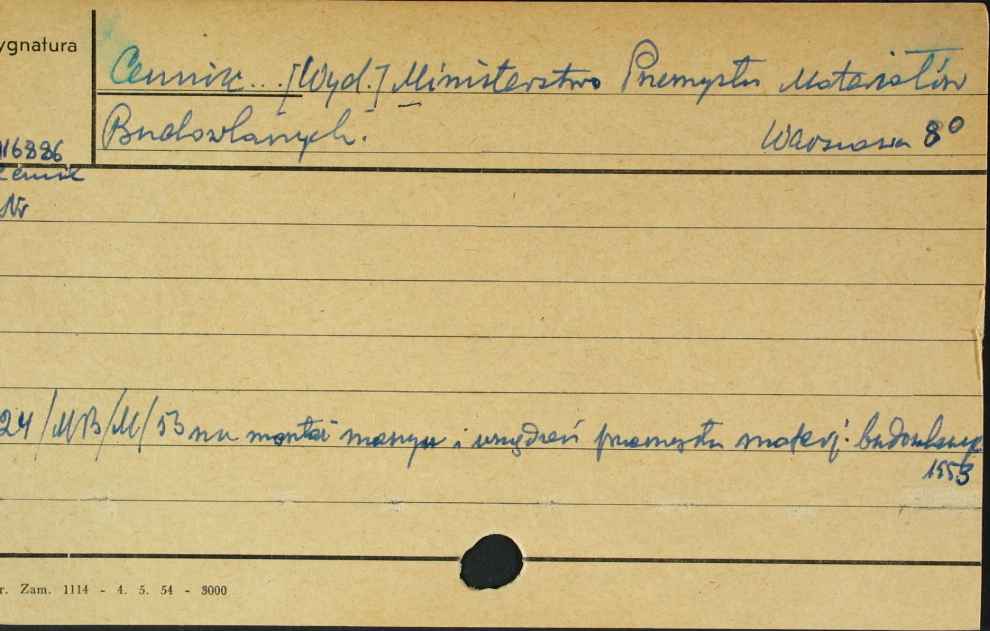 ygnatura
Cennik... [Wyd.] Ministerstwo Przemysłu Materiałów
Budowlanych.
Warszawa 8°
916886
Cennik
Nr
24/MB/M/53 na montaż maszyn i urządzeń przemysłu materj. budowlanych
1953
r. Zam. 1114 - 4. 5. 54 - 3000